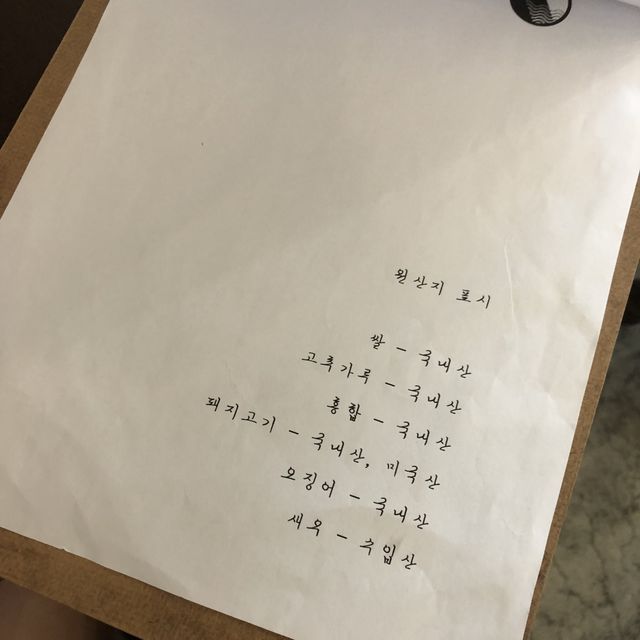 원산지 표시
쌀 - 국내산
고추가루 - 국내산
홍합 - 국내산
돼지고기 - 국내산, 미국산
오징어 - 국내산
새우 - 수입산